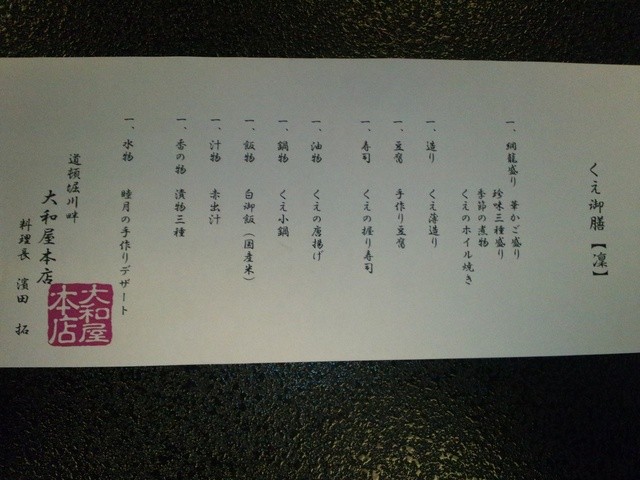 くえ御膳【凜】
一、網籠盛り 華かご盛り
珍味三種盛り
季節の煮物
くえのホイル焼き
一、造り くえ薄造り
一、豆腐 手作り豆腐
一、寿司 くえの握り寿司
一、油物 くえの唐揚げ
一、鍋物 くえ小鍋
一、飯物 白御飯(国産米)
一、汁物 赤出汁
一、香の物 漬物三種
一、水物 睦月の手作りデザート
道頓堀川畔
大和屋本店
料理長 濱田 拓
大和屋
本店